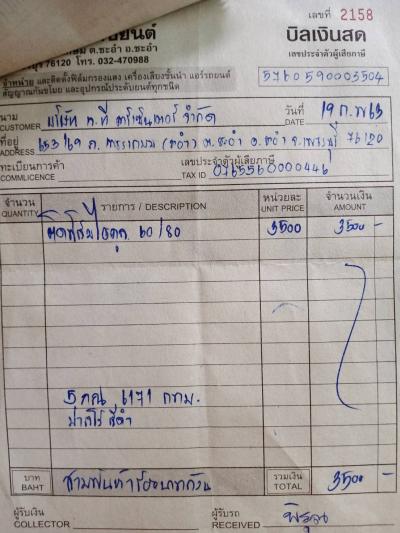 เลขที่ 2158
ยนต์
บิลเงินสด
ต.ชะอำ อ.ชะอำ
76120 โทร. 032-470988
เลขประจำตัวผู้เสียภาษี
จำหน่าย และติดตั้งฟิล์มกรองแสง เครื่องเสียงชั้นนำ แอร์รถยนต์
3760590003504
สัญญาณกันขโมย และอุปกรณ์ประดับยนต์ทุกชนิด
นาม
CUSTOMER บริษัท จำกัด
วันที่
DATE 19 ก.พ 63
ที่อยู่
ADDRESS 653/69 ต.ชะอำ อ.ชะอำ จ.เพชรบุรี 76120
ทะเบียนการค้า
COMMLICENCE
เลขประจำตัวผู้เสียภาษี
TAX ID 0765560000446
จำนวน
QUANTITY
รายการ / DESCRIPTION
หน่วยละ
UNIT PRICE
จำนวนเงิน
AMOUNT
60/80 3500 3500 -
6171 กทม.
สีดำ
บาท
BAHT สามพันห้าร้อยบาทถ้วน
รวมเงิน
TOTAL 3500 -
ผู้รับเงิน
COLLECTOR
ผู้รับรถ
RECEIVED